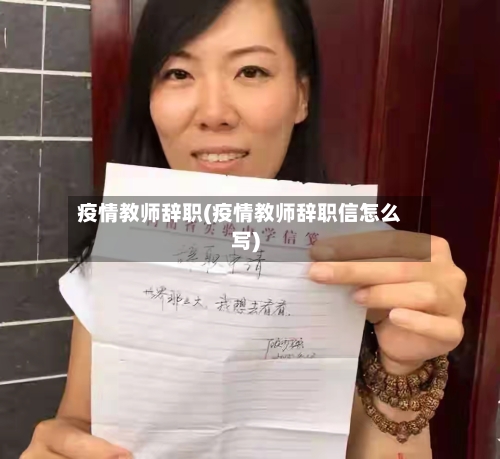 疫情教师辞职(疫情教师辞职信怎么
写)
河南省实验中学信笺
辞职申请
世界那么大，我想去看看。